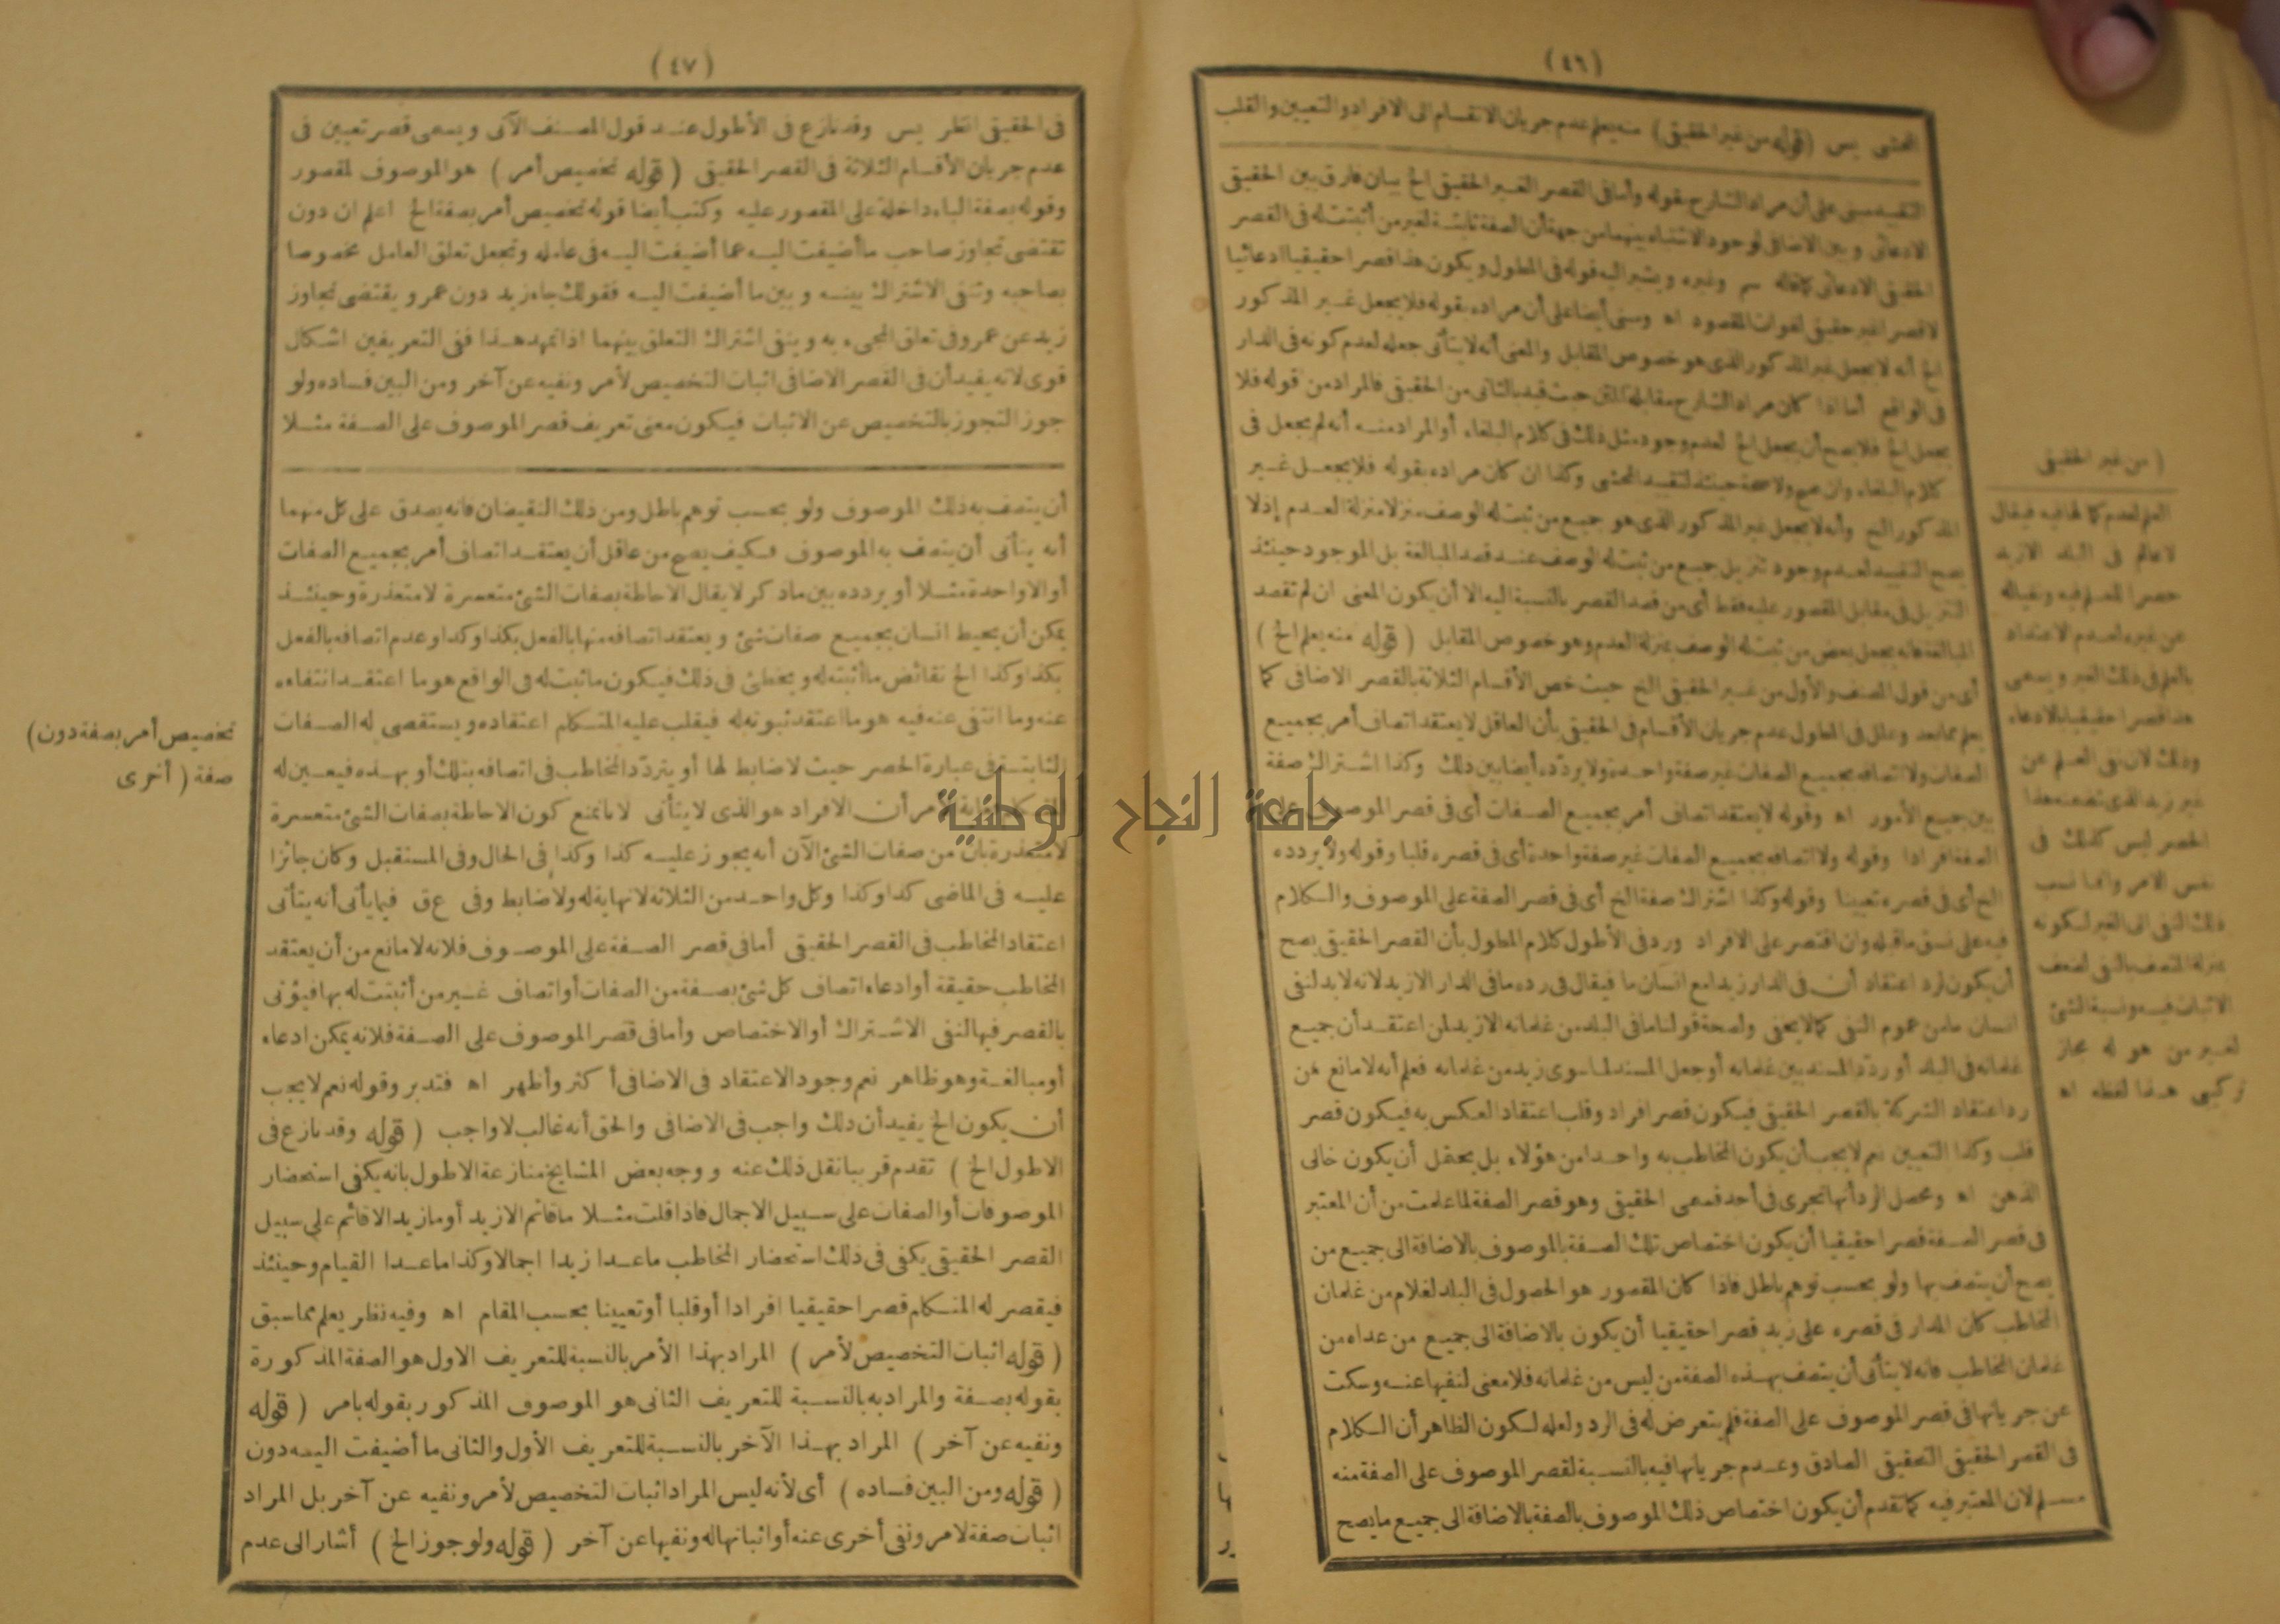 (٤٦)
المحشى يس (قوله من غير الحقيقى) منه يعلم عدم جريان الانقسام الى الافراد والتعيين والقلب
التقييد مبنى على أن مراد الشارح بقوله وأما فى القصر الغير الحقيقى الخ بيان فارق بين الحقيقى
الادعائى وبين الاضافى لوجود الاشتباه بينهما من جهة أن الصفة ثابتة لغير من أثبتت له فى القصر
الحقيقى الادعائى كما قاله سم وغيره ويشير اليه قوله فى المطول ويكون هذا قصرا حقيقيا ادعائيا
لا قصرا غير حقيقى لفوات المقصود اه ومبنى أيضا على أن مراده بقوله فلا يجعل غير المذكور
الخ أنه لا يجعل غير المذكور الذى هو خصوص المقابل والمعنى أنه لا يتأتى جعله لعدم كونه فى الدار
فى الواقع أما اذا كان مراد الشارح مقابلة حيث قيد بالثانى من الحقيقى فالمراد من قوله فلا
يجعل الخ فلا يصح أن يجعل الخ لعدم وجود مثل ذلك فى كلام البلغاء أو المراد منه أنه لم يجعل فى
كلام البلغاء وان صح ولا صحة حينئذ لتقييد المحشى وكذا ان كان مراده بقوله فلا يجعل غير
المذكور الخ وأنه لا يجعل غير المذكور الذى هو جميع من ثبت له الوصف منزلا منزلة العدم إذ لا
يصح التقييد لعدم وجود تنزيل جميع من ثبت له الوصف عند قصد المبالغة بل الموجود حينئذ
التنزيل فى مقابل المقصور عليه فقط أى من قصد القصر بالنسبة اليه الا أن يكون المعنى ان لم تقصد
المبالغة فانه يجعل بعض من ثبت له الوصف بمنزلة العدم وهو خصوص المقابل (قوله منه يعلم الخ)
أى من قول المصنف والأول من غير الحقيقى الخ حيث خص الأقسام الثلاثة بالقصر الاضافى كما
يعلم مما بعد وعلل فى المطول عدم جريان الأقسام فى الحقيقى بأن العاقل لا يعتقد اتصاف أمر بجميع
الصفات ولا اتصافه بجميع الصفات غير صفة واحدة ولا يردده أيضا بين ذلك وكذا اشتراك صفة
بين جميع الأمور اه وقوله لا يعتقد اتصاف أمر بجميع الصفات أى فى قصر الموصوف على
الصفة افرادا وقوله ولا اتصافه بجميع الصفات غير صفة واحدة أى فى قصره قلبا وقوله ولا يردده
الخ أى فى قصره تعيينا وقوله وكذا اشتراك صفة الخ أى فى قصر الصفة على الموصوف والكلام
فيه على نسق ما قبله وان اقتصر على الافراد ورد فى الأطول كلام المطول بأن القصر الحقيقى يصح
أن يكون لرد اعتقاد أن فى الدار زيدا مع انسان ما فيقال فى رده ما فى الدار الا زيد لانه لا بد لنفى
انسان ما من عموم النفى كما لا يخفى ولصحة قولنا ما فى البلد من غلمانه الا زيد لمن اعتقد أن جميع
غلمانه فى البلد أو ردد المسند بين غلمانه أو جعل المسند لما سوى زيد من غلمانه فعلم أنه لا مانع من
رد اعتقاد الشركة بالقصر الحقيقى فيكون قصر افراد وقلب اعتقاد العكس به فيكون قصر
قلب وكذا التعيين نعم لا يجب أن يكون المخاطب به واحدا من هؤلاء بل يحتمل أن يكون خالى
الذهن اه ومحصل الرد أنها تجرى فى أحد قسمى الحقيقى وهو قصر الصفة لما علمت من أن المعتبر
فى قصر الصفة قصرا حقيقيا أن يكون اختصاص تلك الصفة بالموصوف بالاضافة الى جميع من
يصح أن يتصف بها ولو بحسب توهم باطل فاذا كان المقصور هو الحصول فى البلد لغلام من غلمان
المخاطب كان المدار فى قصره على زيد قصرا حقيقيا أن يكون بالاضافة الى جميع من عداه من
غلمان المخاطب فانه لا يتأتى أن يتصف بهذه الصفة من ليس من غلمانه فلا معنى لنفيها عنه وسكت
عن جريانها فى قصر الموصوف على الصفة فلم يتعرض له فى الرد ولعله لكون الظاهر أن الكلام
فى القصر الحقيقى التحقيقى الصادق وعدم جريانها فيه بالنسبة لقصر الموصوف على الصفة منه
مسلم لان المعتبر فيه كما تقدم أن يكون اختصاص ذلك الموصوف بالصفة بالاضافة الى جميع ما يصح
(من غير الحقيقى
لا عالم فى البلد الا زيد
حصرا للعلم فيه ونفيا له
عن غيره لعدم الاعتداد
بالعلم فى ذلك الغير ويسمى
هذا قصرا حقيقيا بالادعاء
وذلك لان نفى العلم عن
غير زيد الذى تضمنه هذا
الحصر ليس كذلك فى
نفس الامر وانما نسب
ذلك النفى الى الغير لكونه
بمنزلة المتصف بالنفى لضعف
الاثبات فيه ونسبة الشئ
لغير من هو له مجاز
تركيبى هذا لفظه اه
(٤٧)
فى الحقيقى انظر يس وقد نازع فى الأطول عند قول المصنف الآتى ويسمى قصر تعيين فى
عدم جريان الأقسام الثلاثة فى القصر الحقيقى (قوله تخصيص أمر) هو الموصوف لمقصور
وقوله بصفة الباء داخلة على المقصور عليه وكتب أيضا قوله تخصيص أمر بصفة الخ اعلم ان دون
تقتضى تجاوز صاحب ما أضيفت اليه عما أضيفت اليه فى عامله وتجعل تعلق العامل مخصوصا
بصاحبه وتنفى الاشتراك بينه وبين ما أضيفت اليه فقولك جاء زيد دون عمرو يقتضى تجاوز
زيد عن عمرو فى تعلق المجىء به وينفى اشتراك التعلق بينهما اذا تمهد هذا ففى التعريفين اشكال
قوى لانه يفيد أن فى القصر الاضافى اثبات التخصيص لأمر ونفيه عن آخر ومن البين فساده ولو
جوز التجوز بالتخصيص عن الاثبات فيكون معنى تعريف قصر الموصوف على الصفة مثلا
أن يتصف به ذلك الموصوف ولو بحسب توهم باطل ومن ذلك النقيضان فانه يصدق على كل منهما
أنه يتأتى أن يتصف به الموصوف فكيف يصح من عاقل أن يعتقد اتصاف أمر بجميع الصفات
أو الا واحدة مثلا أو يردده بين ما ذكر لا يقال الاحاطة بصفات الشئ متعسرة لا متعذرة وحينئذ
يمكن أن يحيط انسان بجميع صفات شئ ويعتقد اتصافه منها بالفعل بكذا وكذا وعدم اتصافه بالفعل
بكذا وكذا الخ نقائض ما أثبته له ويخطئ فى ذلك فيكون ما ثبت له فى الواقع هو ما اعتقد انتفاءه
عنه وما انتفى عنه فيه هو ما اعتقد ثبوته له فيقلب عليه المتكلم اعتقاده ويستقصى له الصفات
الثابتة فى عبارة الحصر حيث لا ضابط لها أو يتردد المخاطب فى اتصافه بتلك أو بهذه فيعين له
المتكلم غاية الأمر أن الافراد هو الذى لا يتأتى لانا نمنع كون الاحاطة بصفات الشئ متعسرة
لا متعذرة بان من صفات الشئ الآن أنه يجوز عليه كذا وكذا فى الحال وفى المستقبل وكان جائزا
عليه فى الماضى كذا وكذا وكل واحد من الثلاثة لا نهاية له ولا ضابط وفى ع ق فيما يأتى أنه يتأتى
اعتقاد المخاطب فى القصر الحقيقى أما فى قصر الصفة على الموصوف فلانه لا مانع من أن يعتقد
المخاطب حقيقة أو ادعاء اتصاف كل شئ بصفة من الصفات أو اتصاف غير من أثبتت له بها فيؤتى
بالقصر فيها لنفى الاشتراك أو الاختصاص وأما فى قصر الموصوف على الصفة فلانه يمكن ادعاء
أو مبالغة وهو ظاهر نعم وجود الاعتقاد فى الاضافى أكثر وأظهر اه فتدبر وقوله نعم لا يجب
أن يكون الخ يفيد أن ذلك واجب فى الاضافى والحق أنه غالب لا واجب (قوله وقد نازع فى
الاطول الخ) تقدم قريبا نقل ذلك عنه ووجه بعض المشايخ منازعة الاطول بانه يكفى استحضار
الموصوفات أو الصفات على سبيل الاجمال فاذا قلت مثلا ما قائم الا زيد أو ما زيد الا قائم على سبيل
القصر الحقيقى يكفى فى ذلك استحضار المخاطب ما عدا زيدا اجمالا وكذا ما عدا القيام وحينئذ
فيقصر له المتكلم قصرا حقيقيا افرادا أو قلبا أو تعيينا بحسب المقام اه وفيه نظر يعلم مما سبق
(قوله اثبات التخصيص لأمر) المراد بهذا الأمر بالنسبة للتعريف الاول هو الصفة المذكورة
بقوله بصفة والمراد به بالنسبة للتعريف الثانى هو الموصوف المذكور بقوله بامر (قوله
ونفيه عن آخر) المراد بهذا الآخر بالنسبة للتعريف الأول والثانى ما أضيفت اليه دون
(قوله ومن البين فساده) أى لأنه ليس المراد اثبات التخصيص لأمر ونفيه عن آخر بل المراد
اثبات صفة لامر ونفى أخرى عنه أو اثباتها له ونفيها عن آخر (قوله ولو جوز الخ) أشار الى عدم
تخصيص أمر بصفة دون)
صفة (أخرى
جامعة النجاح الوطنية